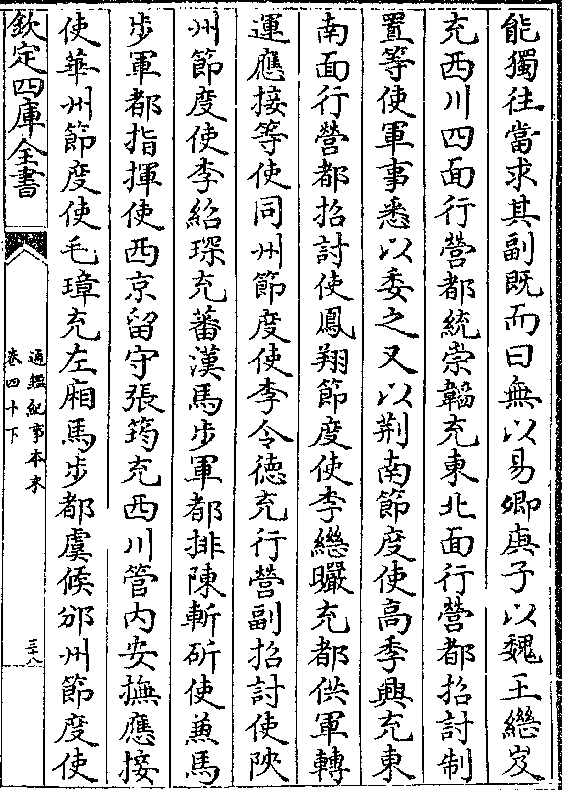 能獨往當求其副既而曰無以易卿庚子以魏王繼岌
充西川四面行營都統崇韜充東北面行營都招討制
置等使軍事悉以委之又以荆南節度使髙季興充東
南面行營都招討使鳳翔節度使李繼曮充都供軍轉
運應接等使同州節度使李令徳充行營副招討使陜
州節度使李紹琛充蕃漢馬步軍都排陳斬斫使兼馬
步軍都指揮使西京留守張筠充西川管内安撫應接
使華州節度使毛璋充左廂馬步都虞候邠州節度使
欽定四庫全書
通鑑紀事本末
卷四十下
三十八